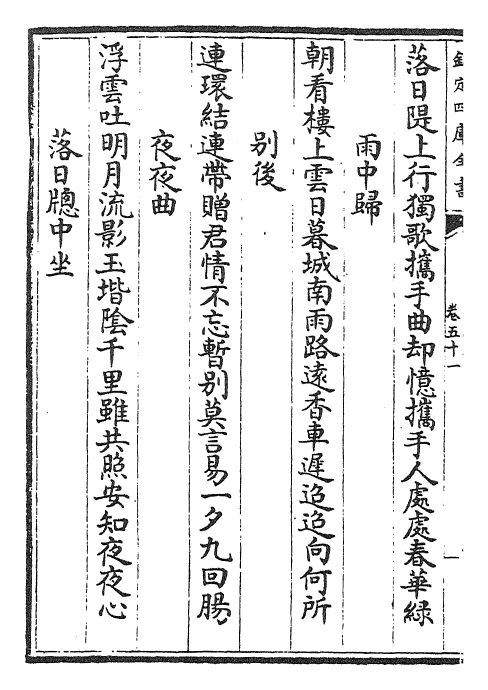 欽定四庫全書
卷五十一
一
落日隄上行獨歌攜手曲却憶攜手人處處春華緑
雨中歸
朝看樓上雲日暮城南雨路逺香車遲迢迢向何所
别後
連環結連帶贈君情不忘暫别莫言易一夕九回腸
夜夜曲
浮雲吐明月流影玉堦陰千里雖共照安知夜夜心
落日牎中坐